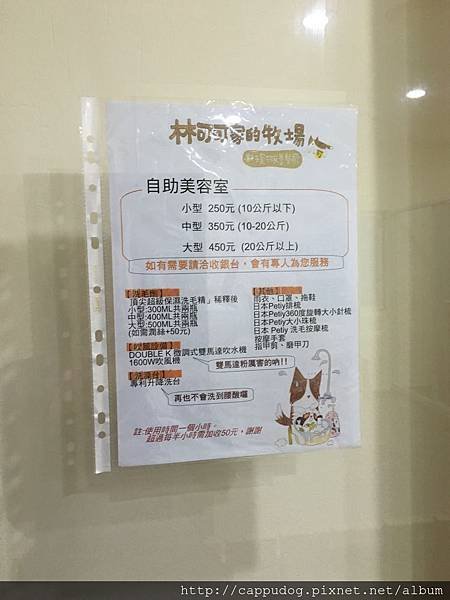 林可可家的牧場
自助美容室
小型 250元 (10公斤以下)
中型 350元 (10-20公斤)
大型 450元 (20公斤以上)
如有需要請洽收銀台，會有專人為您服務
頂尖超級保濕洗毛精」稀釋後
小型:300ML共兩瓶
中型:400ML共兩瓶
大型:500ML共兩瓶
(如需潤絲+50元)
【吹風設備】
DOUBLE K 微調式雙馬達吹水機
1600W吹風機
雙馬達粉厲害的吶!!
【洗澡台】
專利升降洗台
再也不會洗到腰酸囉
【其他】
雨衣、口罩、拖鞋
日本Petiy排梳
日本Petiy360度旋轉大小針梳
日本Petiy大小珠梳
日本 Petiy 洗毛按摩梳
按摩手套
指甲剪、磨甲刀
註:使用時間一個小時。
超過每半小時需加收50元，謝謝
http://cappudog.pixnet.net/album